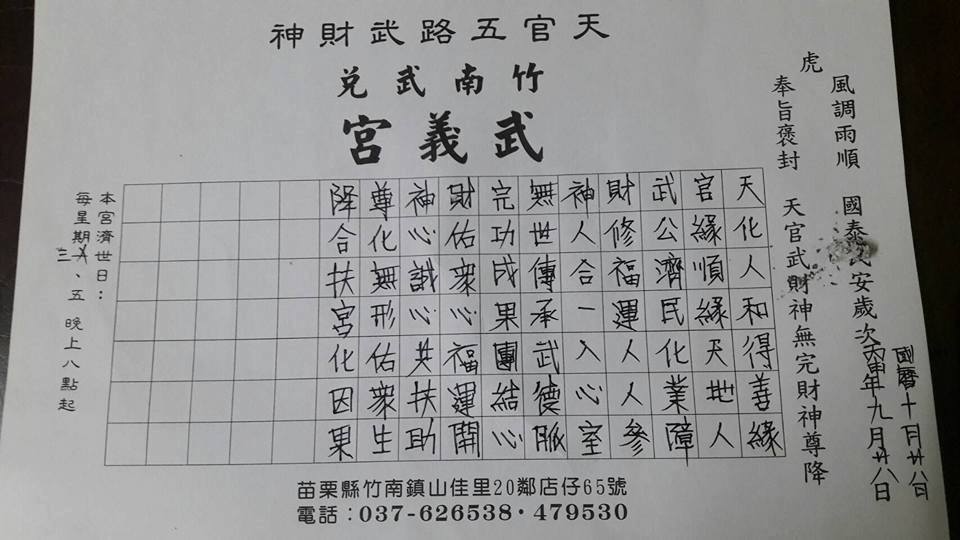 天官五路武財神
竹南武兌
武義宮
虎
風調雨順 國泰民安歲次丙申年九月廿八日
國曆十月廿八日
奉旨褒封 天官武財神無完財神尊降
天化人和得善緣
官緣順緣天地人
武公濟民化業障
財修福運人人參
神人合一入心室
無世傳承武德脈
完功成果團結心
財佑衆心福運開
神心誠心共扶助
尊化無形佑衆生
降合扶宮化因果
本宮濟世日：
每星期三、五 晚上八點起
苗栗縣竹南鎮山佳里20鄰店仔65號
電話：037-626538・479530